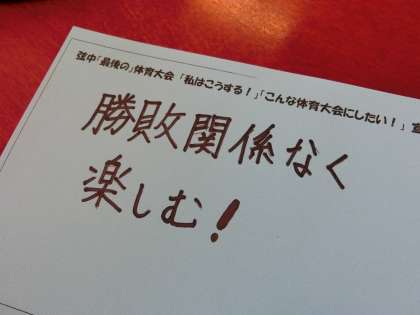 弦中「最後の」体育大会 「私はこうする！」「こんな体育大会にしたい！」
勝敗関係なく
楽しむ！